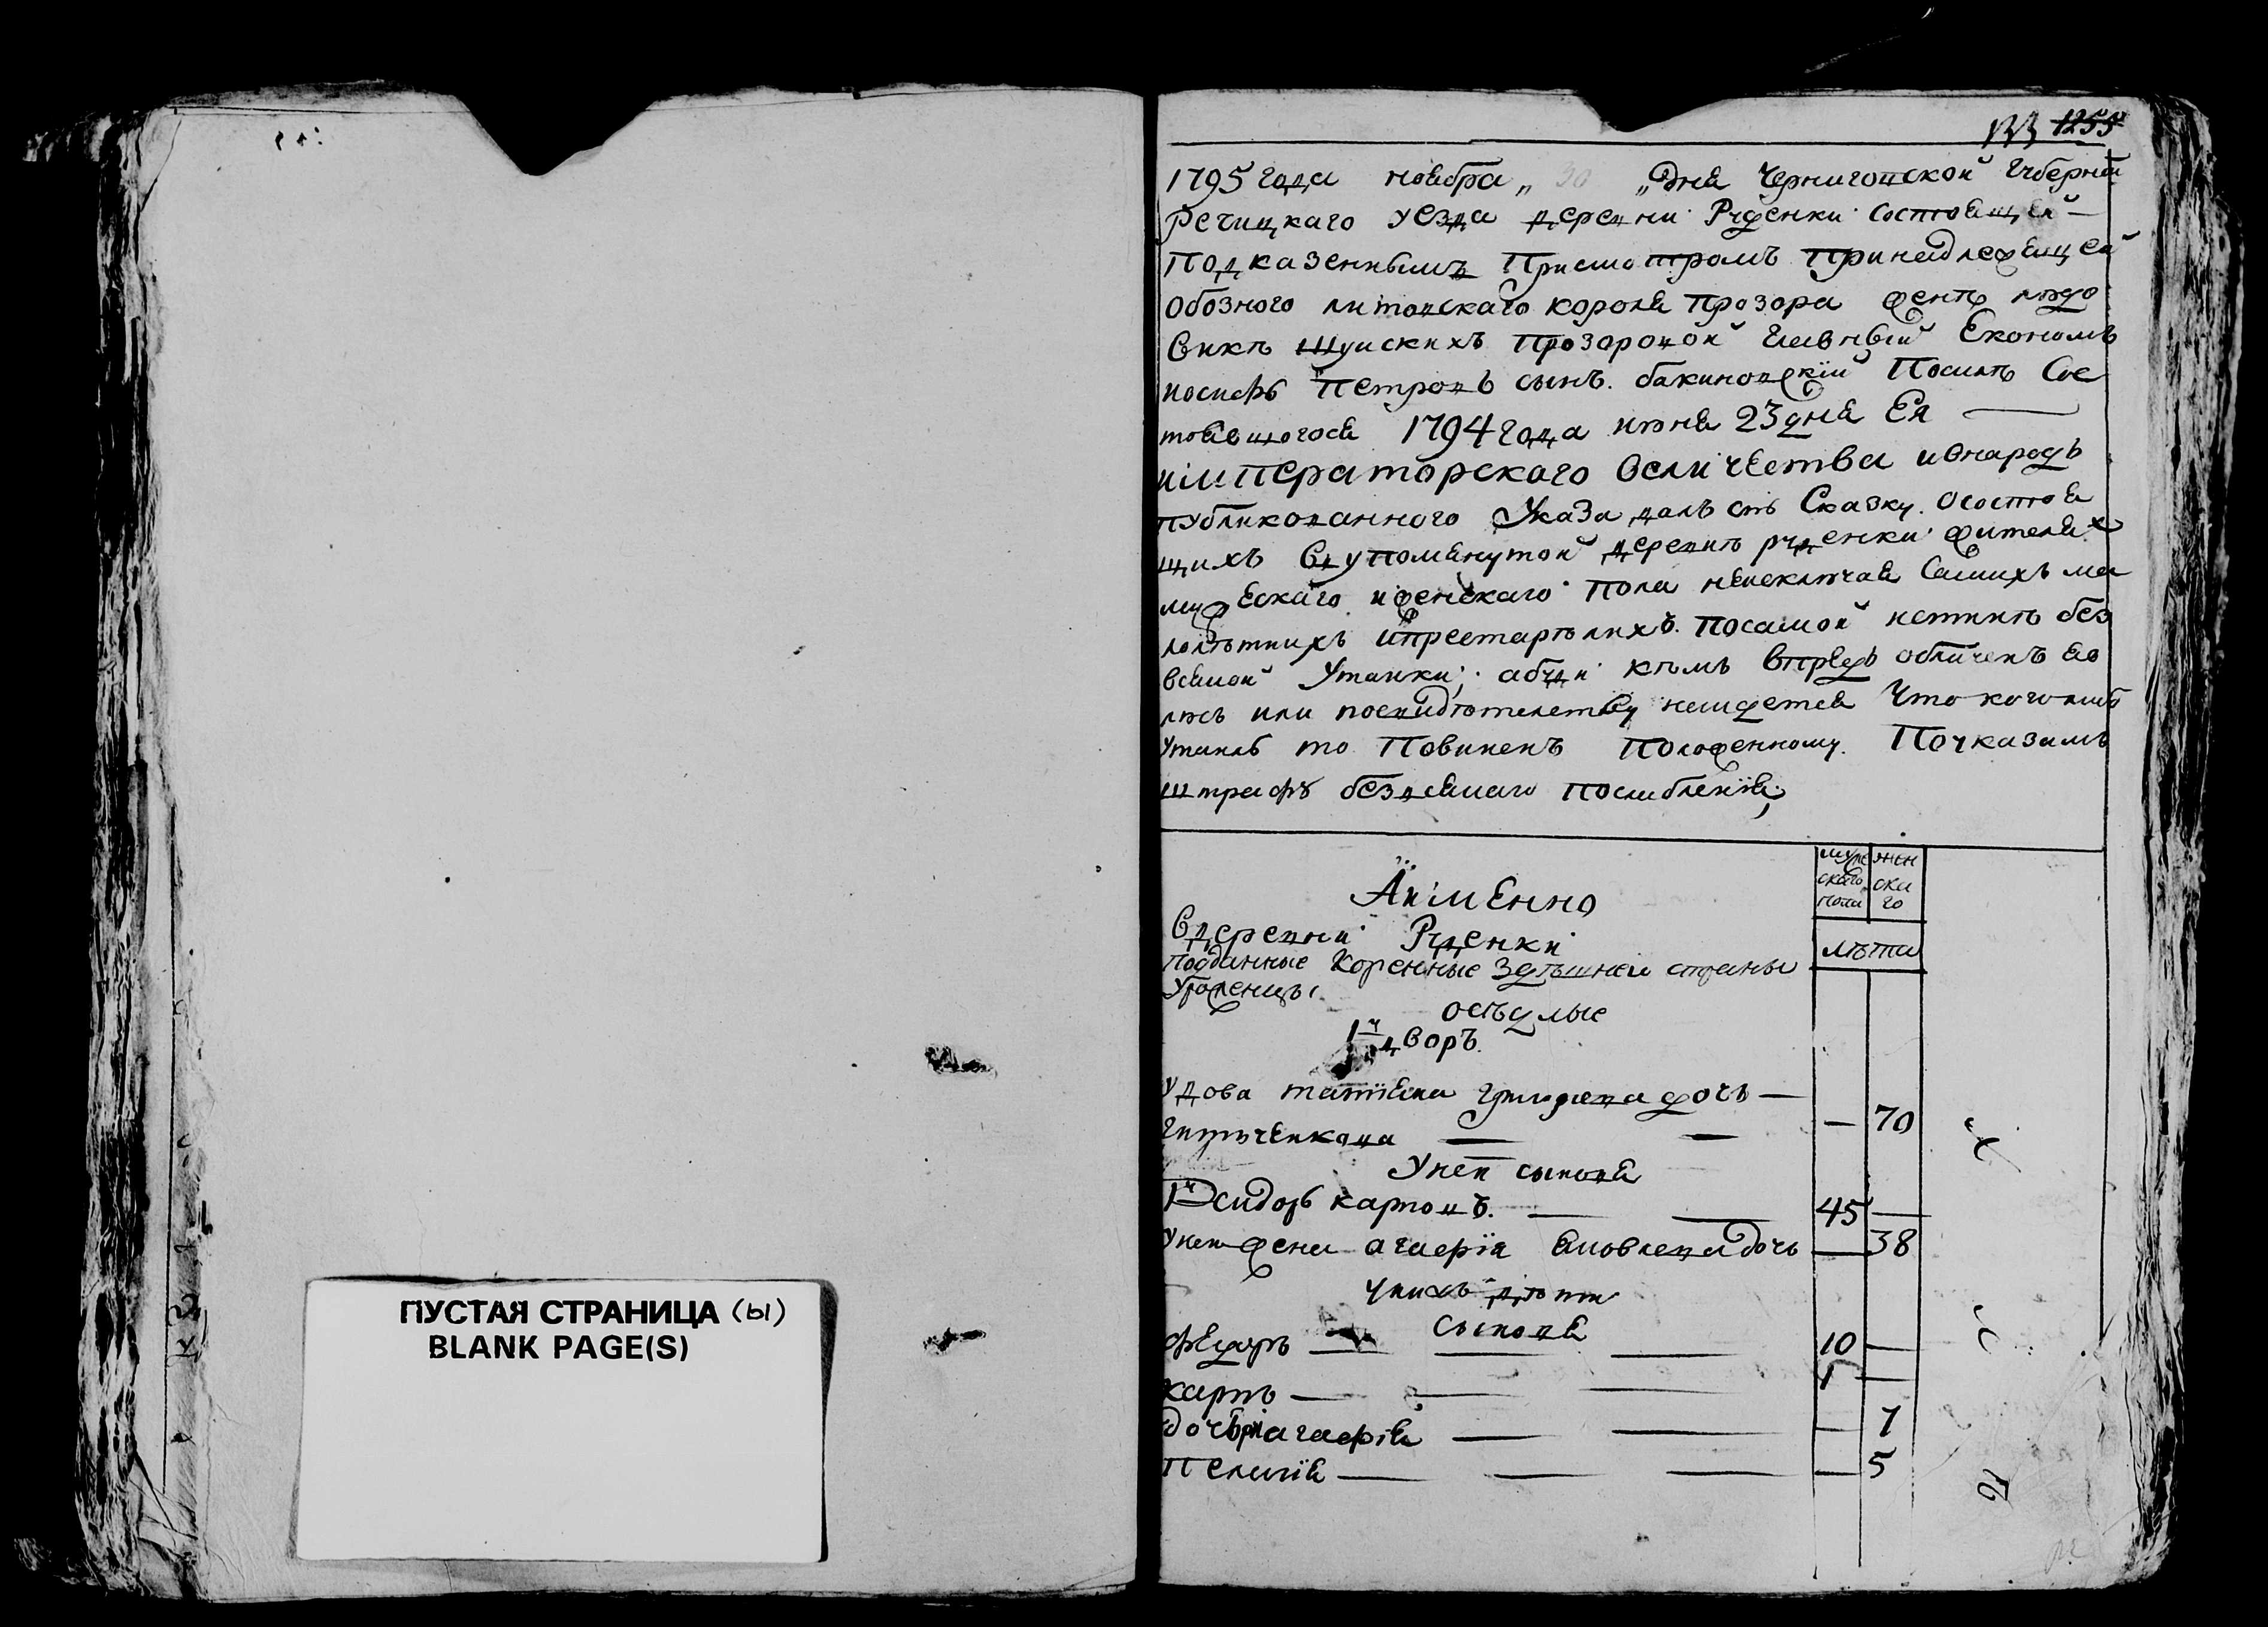 ПУСТАЯ СТРАНИЦА (ы)
BLANK PAGE(S)
133 1255
1795 года ноября „ 30 „ дня Черниговской Губернии
Речицкаго уезда деревни Руденки состоящей
Подказеннымъ Присмотромъ Принадлежащей
Обозного литовскаго короля Прозора жены людо
вики Шуискихъ Прозоровой Главный Економъ
иосифъ Петровъ сынъ бакиновский Посилѣ Сос
тоявшогося 1794 года июня 23 дня Ея
императорскаго величества ивнародъ
публикованного Указа далъ сию Сказку осостоя
щихъ вупомянутой деревнѣ руденки жителях
мужескаго иженскаго пола неисключая самихъ ма
лолѣтнихъ ипрестарѣлихъ посамой истинѣ без
всякой утайки; абуди кѣмъ впредь обличенъ яв
люсь или посвидѣтелству найдется Что коголибо
утаилъ то Повиненъ Положенному Поуказамъ
штрафу безвсякаго послабления;
мужескаго пола
женскаго
Аименно
лѣта
Вдеревни Руденки
Подданные Коренные здѣшней страны
Уроженцы
осѣдлые
1й дворъ
Удова татияна григорева дочь
— 70
Унеи сыновя
1й Сидоръ карповъ 45 —
Унеи жена агафия яковлева дочь — 38
униxъ дѣти
сыновя
Федоръ 10 —
карпъ 1 —
дочери агафия — 7
Пелагия — 5